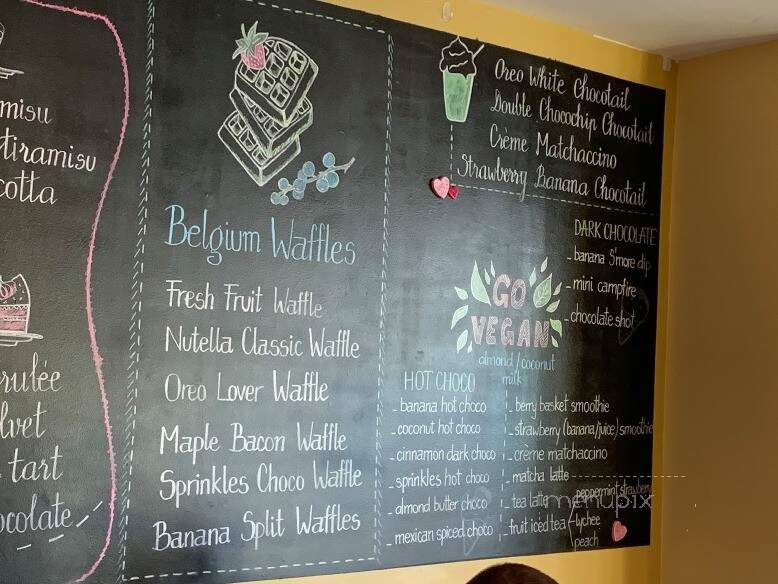 misu
tiramisu
cotta
rulée
lvet
tart
ocolate
Belgium Waffles
Fresh Fruit Waffle
Nutella Classic Waffle
Oreo Lover Waffle
Maple Bacon Waffle
Sprinkles Choco Waffle
Banana Split Waffles
Oreo White Chocotail
Double Chocochip Chocotail
Crème Matchaccino
Strawberry Banana Chocotail
DARK CHOCOLATE
- banana S'more dip
- mini campfire
- chocolate shot
GO
VEGAN
almond / coconut
milk
HOT CHOCO
- banana hot choco
- coconut hot choco
- cinnamon dark choco
- sprinkles hot choco
- almond butter choco
- mexican spiced choco
- berry basket smoothie
- strawberry (banana/juice) smoothie
- crème matchaccino
- matcha latte
- tea latte
- fruit iced tea
peppermint strawberry
lychee
peach
menupix